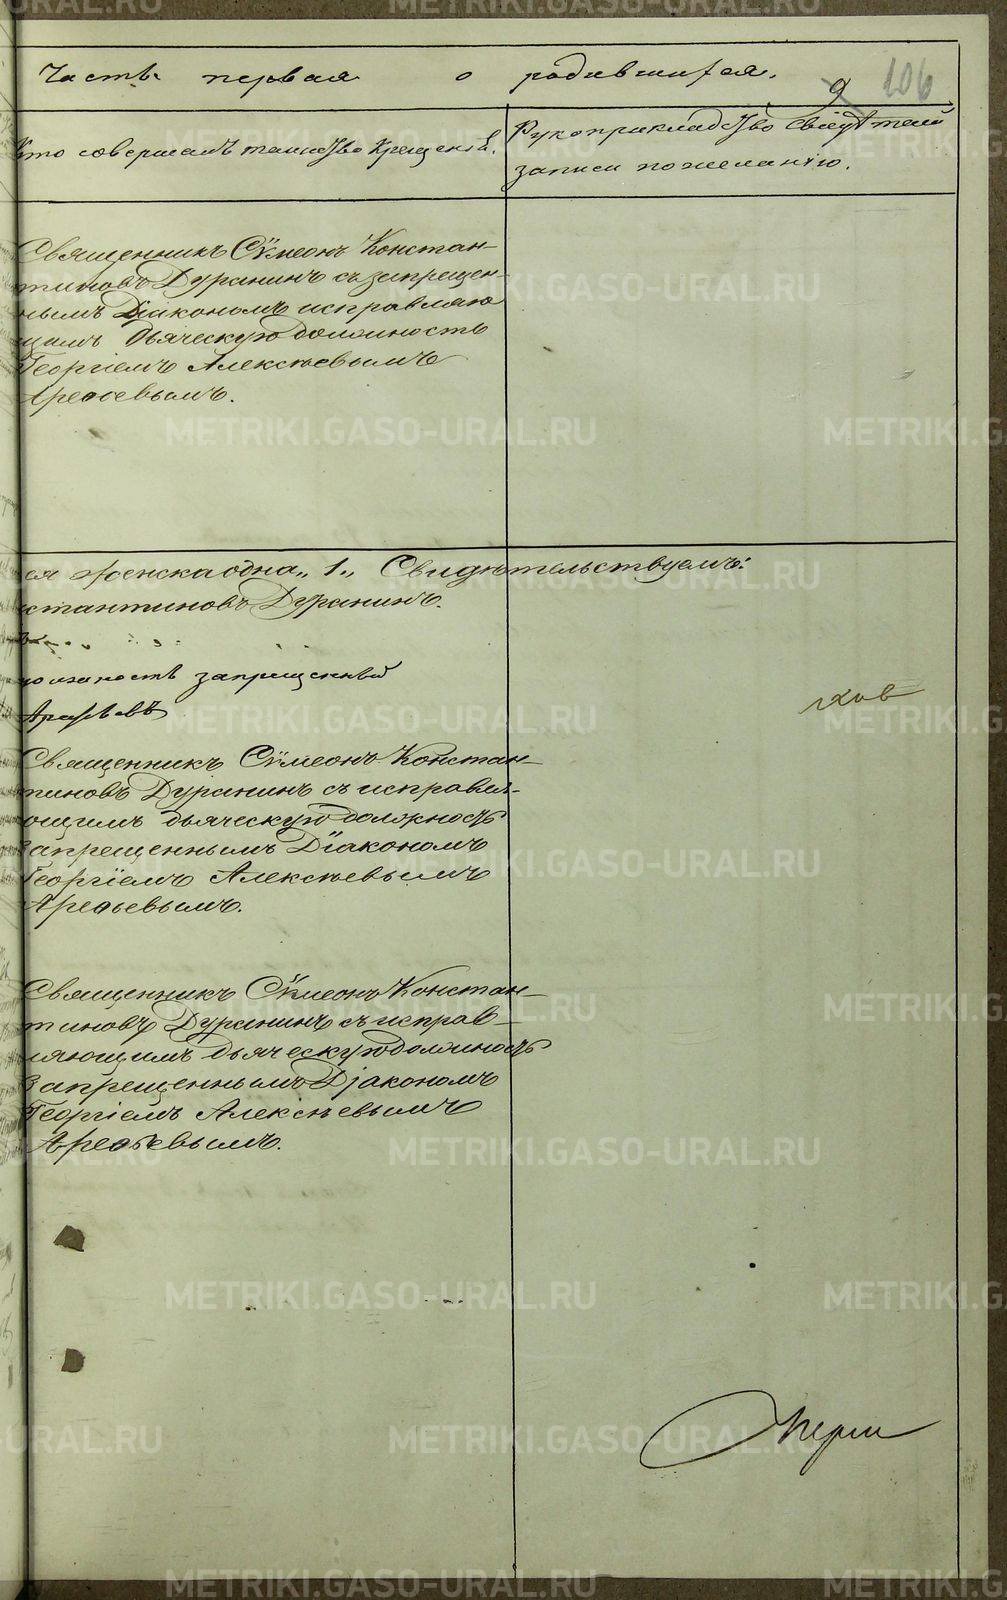 Часть первая о родившихся.
9 106
Кто совершалъ таинство крещенія.
Рукоприкладство свидѣтелей
записи по желанію.
Священникъ Сѵмеонъ Констан-
тиновъ Дуранинъ съ запрещен-
нымъ Діакономъ исправляю
щимъ дьяческую должность
Георгіемъ Алексѣевымъ
Арефьевымъ.
ся женска одна „1„ Свидѣтельствуемъ:
стантиновъ Дуранинъ.
должность запрещенный
Арефьевъ
Священникъ Сѵмеонъ Констан-
тиновъ Дуранинъ съ исправля-
ющимъ дьяческую должность
запрещеннымъ Діакономъ
Георгіемъ Алексѣевымъ
Арефьевымъ.
Священникъ Сѵмеонъ Констан-
тиновъ Дуранинъ съ исправ-
ляющимъ дьяческую должность
запрещеннымъ Діакономъ
Георгіемъ Алексѣевымъ
Арефьевымъ.
METRIKI.GASO-URAL.RU